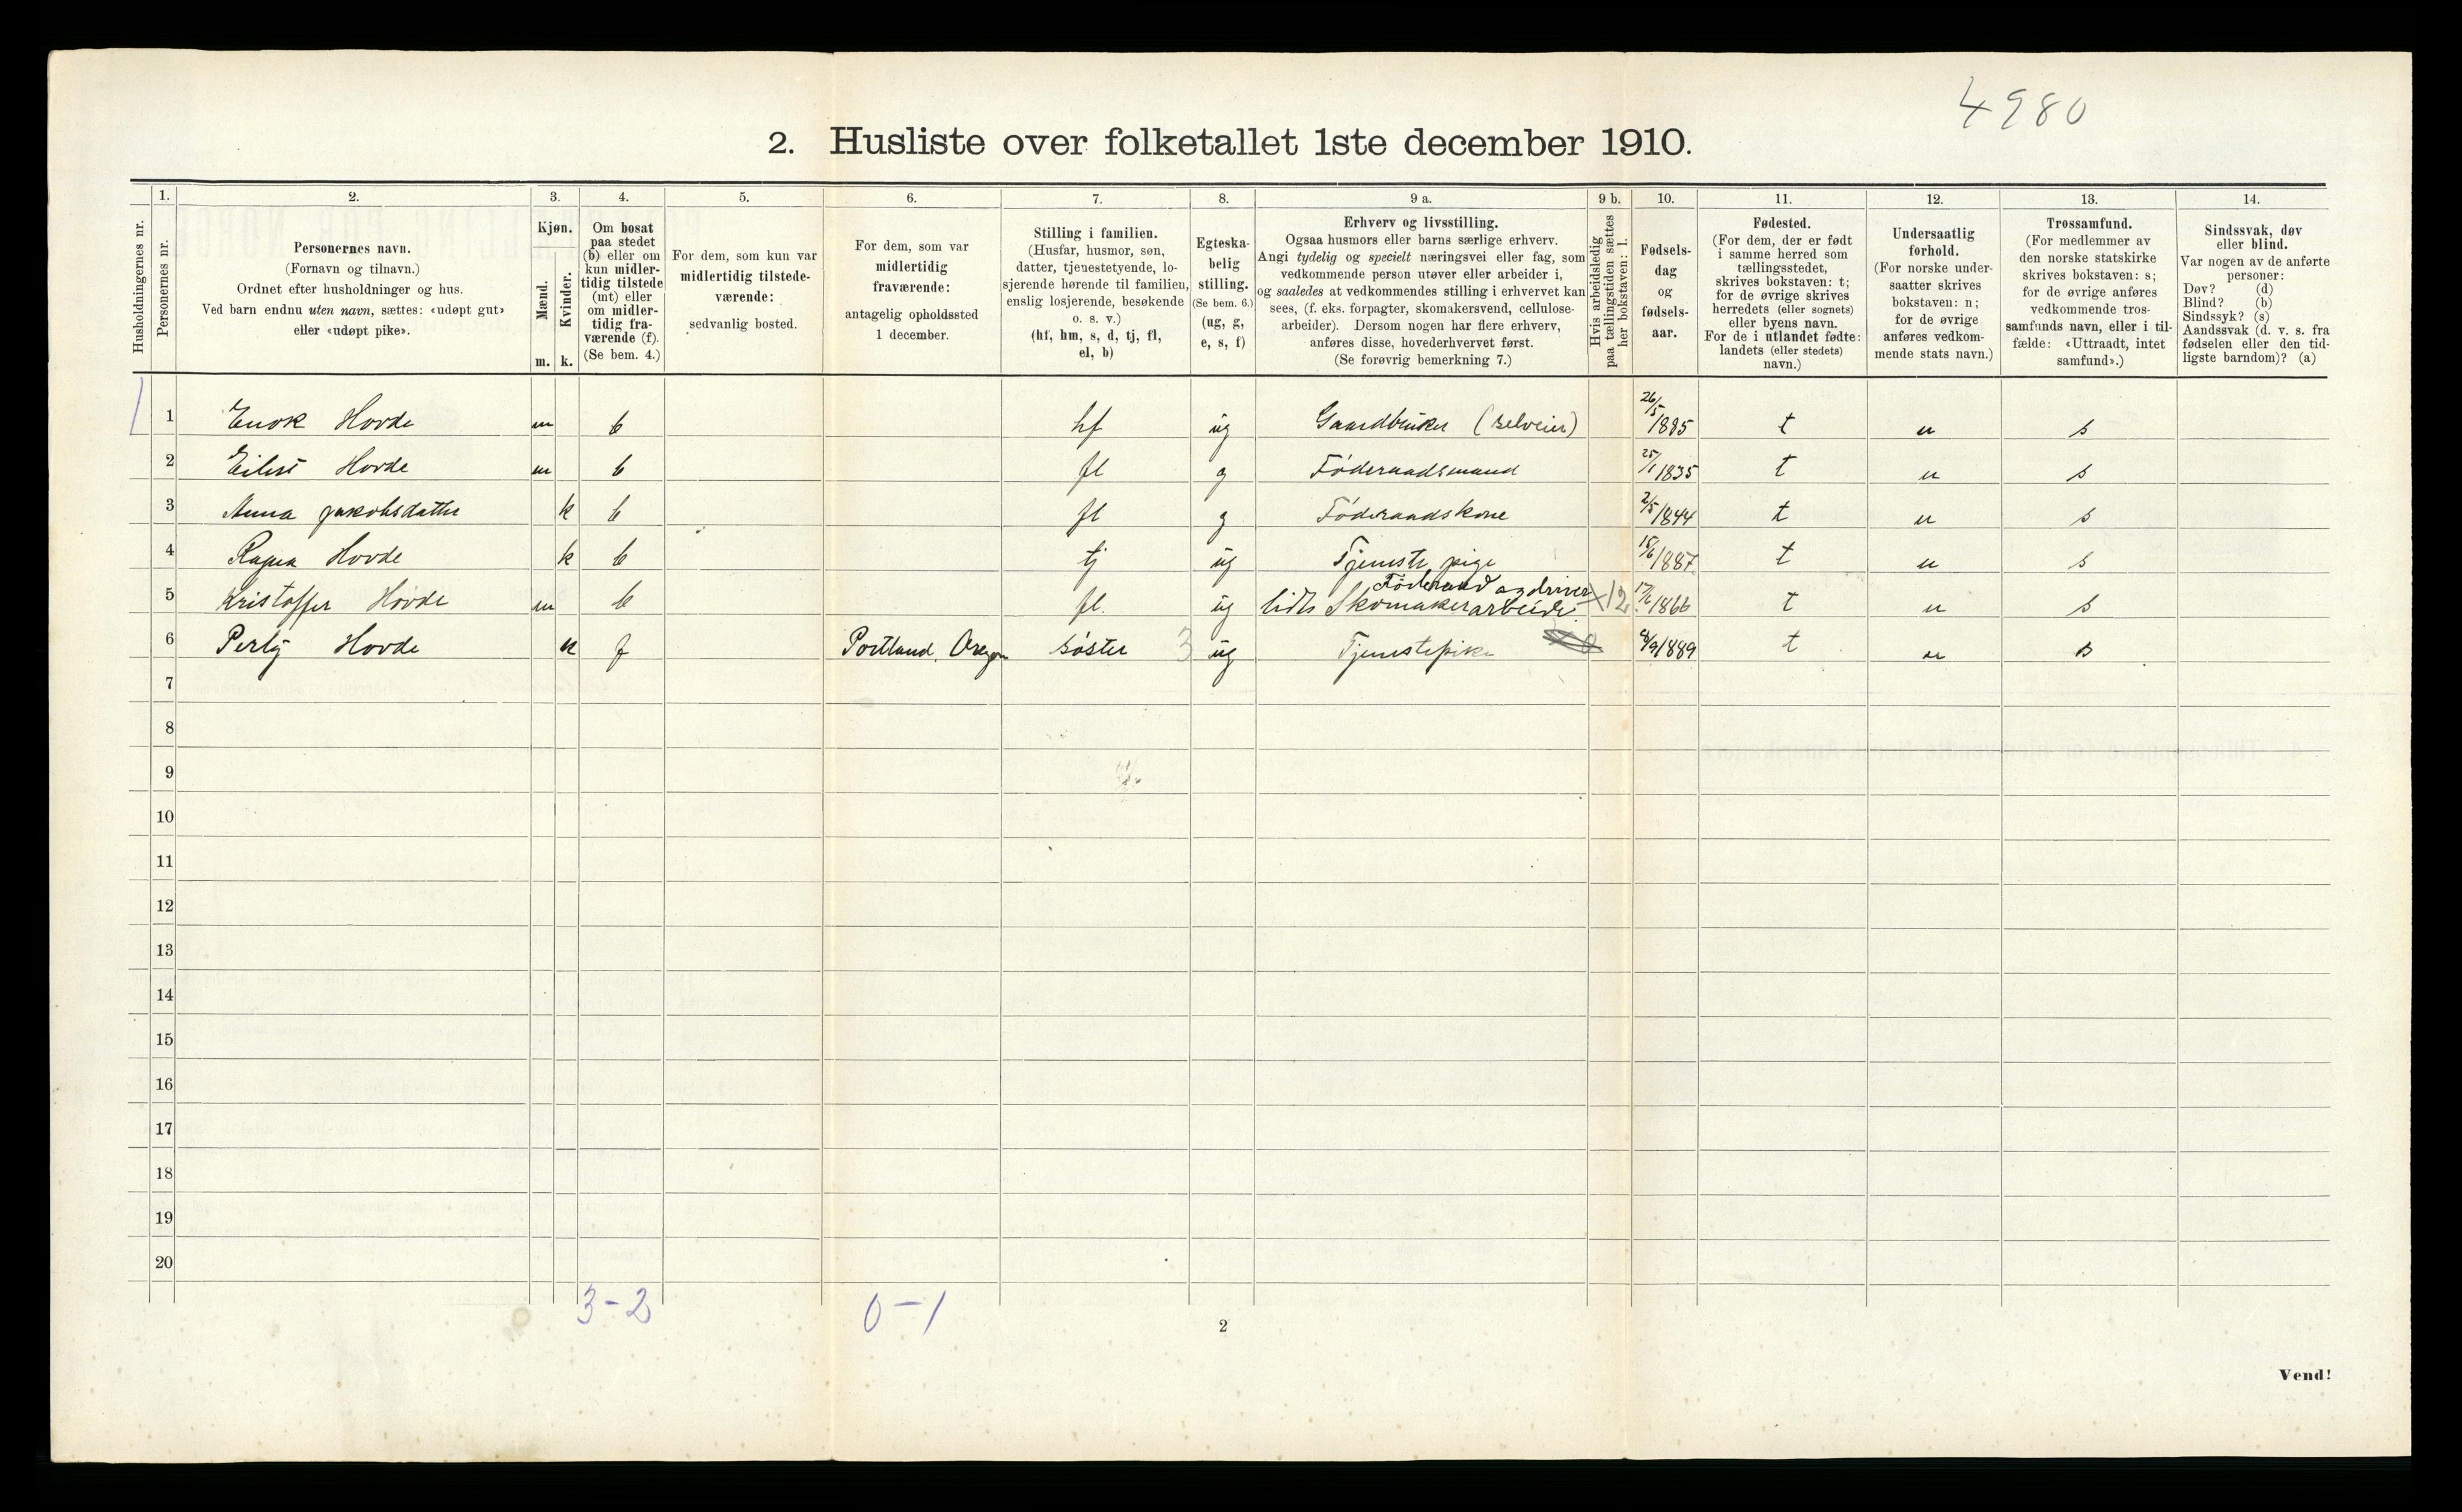 4980
2. Husliste over folketallet 1ste december 1910.
Husholdningernes nr.
1.
Personernes nr.
2.
Personernes navn.
(Fornavn og tilnavn.)
Ordnet efter husholdninger og hus.
Ved barn endnu uten navn, sættes: «udøpt gut»
eller «udøpt pike».
3.
Kjøn.
Mænd.
Kvinder.
m. k.
4.
Om bosat
paa stedet
(b) eller om
kun midler-
tidig tilstede
(mt) eller
om midler-
tidig fra-
værende (f).
(Se bem. 4.)
5.
For dem, som kun var
midlertidig tilstede-
værende:
sedvanlig bosted.
6.
For dem, som var
midlertidig
fraværende:
antagelig opholdssted
1 december.
7.
Stilling i familien.
(Husfar, husmor, søn,
datter, tjenestetyende, lo-
sjerende hørende til familien,
enslig losjerende, besøkende
o. s. v.)
(hf, hm, s, d, tj, fl,
el, b)
8.
Egteska-
belig
stilling.
(Se bem. 6.)
(ug, g,
e, s, f)
9 a.
Erhverv og livsstilling.
Ogsaa husmors eller barns særlige erhverv.
Angi tydelig og specielt næringsvei eller fag, som
vedkommende person utøver eller arbeider i,
og saaledes at vedkommendes stilling i erhvervet kan
sees, (f. eks. forpagter, skomakersvend, cellulose-
arbeider). Dersom nogen har flere erhverv,
anføres disse, hovederhvervet først.
(Se forøvrig bemerkning 7.)
9 b.
Hvis arbeidsledig
paa tællingstiden sættes
her bokstaven: l.
10.
Fødsels-
dag
og
fødsels-
aar.
11.
Fødested.
(For dem, der er født
i samme herred som
tællingsstedet,
skrives bokstaven: t;
for de øvrige skrives
herredets (eller sognets)
eller byens navn.
For de i utlandet fødte:
landets (eller stedets)
navn.)
12.
Undersaatlig
forhold.
(For norske under-
saatter skrives
bokstaven: n;
for de øvrige
anføres vedkom-
mende stats navn.)
13.
Trossamfund.
(For medlemmer av
den norske statskirke
skrives bokstaven: s;
for de øvrige anføres
vedkommende tros-
samfunds navn, eller i til-
fælde: «Uttraadt, intet
samfund».)
14.
Sindssvak, døv
eller blind.
Var nogen av de anførte
personer:
Døv? (d)
Blind? (b)
Sindssyk? (s)
Aandssvak (d. v. s. fra
fødselen eller den tid-
ligste barndom)? (a)
1 1 Enok Hovde m b hf ug Gaardbruker (selveier) 26/5 1885 t n s
2 Eilert Hovde m b fl g Føderaadsmand 25/1 1835 t n s
3 Anna Jakobsdatter k b fl g Føderaadskone 2/5 1844 t n s
4 Ragna Hovde k b tj ug Tjeneste pige 15/6 1887 t n s
5 Kristoffer Hovde m b fl. ug Føderaad og driver
lidt Skomakerarbeide. ×12 17/6 1866 t n s
6 Hovde k f Portland, Oregon søster 3 ug Tjenestepike 8/9 1889 t n s
7
8
9
10
11
12
13
14
15
16
17
18
19
20
3-2 0-1
2
Vend!